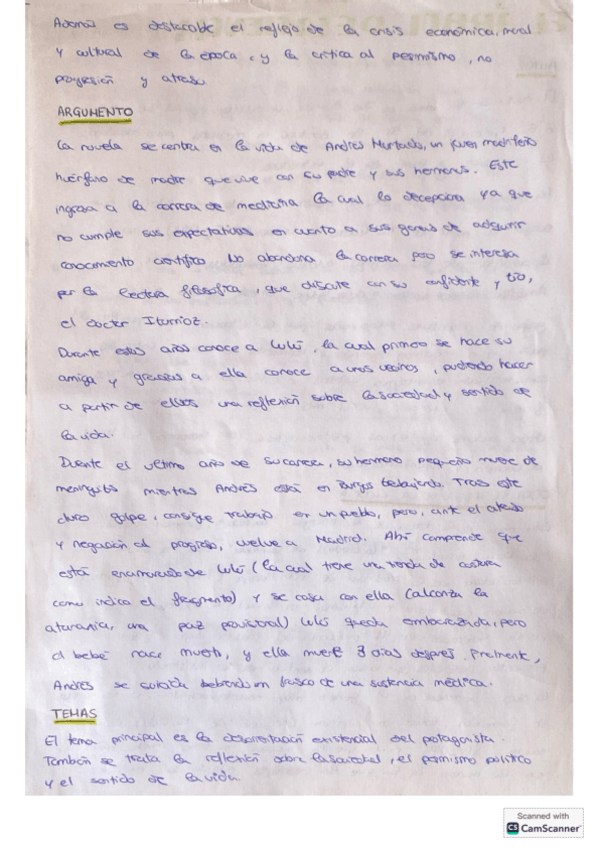 Además es destacable el reflejo de la crisis económica, moral
y cultural de la época, y la crítica al pesimismo, no
progresión y atraso
ARGUMENTO
La novela se centra en la vida de Andrés Hurtado, un joven madrileño
huérfano de madre que vive con su padre y sus hermanos. Este
ingresa a la carrera de medicina la cual lo decepciona ya que
no cumple sus expectativas en cuanto a sus ganas de adquirir
conocimiento científico No abandona la carrera pero se interesa
por la lectura filosófica, que discute con su confidente y tío,
el doctor Iturrioz.
Durante estos años conoce a Lulú, la cual primero se hace su
amiga y gracias a ella conoce a unos vecinos, pudiendo hacer
a partir de ellos una reflexión sobre la sociedad y sentido de
la vida.
Durante el ultimo año de su carrera, su hermano pequeño muere de
meningitis mientras Andrés está en Burgos trabajando. Tras este
duro golpe, consigue trabajo en un pueblo, pero, ante el atraso
y negación al progreso, vuelve a Madrid. Ahí comprende que
está enamorado de Lulú (la cual tiene una tienda de costura
como indica el fragmento) y se casa con ella (alcanza la
ataraxia, una paz provisional) Lulú queda embarazada, pero
el bebé nace muerto, y ella muere 3 días después. Finalmente,
Andrés se suicida bebiendo un frasco de una sustancia médica.
TEMAS
El tema principal es la desorientación existencial del protagonista.
También se trata la reflexión sobre la sociedad, el pesimismo político
y el sentido de la vida.
Scanned with
CS CamScanner